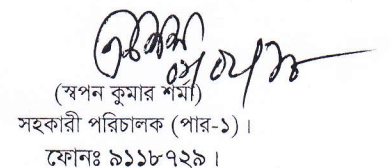 (স্বপন কুমার শর্মা)
সহকারী পরিচালক (পার-১)।
ফোনঃ ৯১১৮৭২৯।